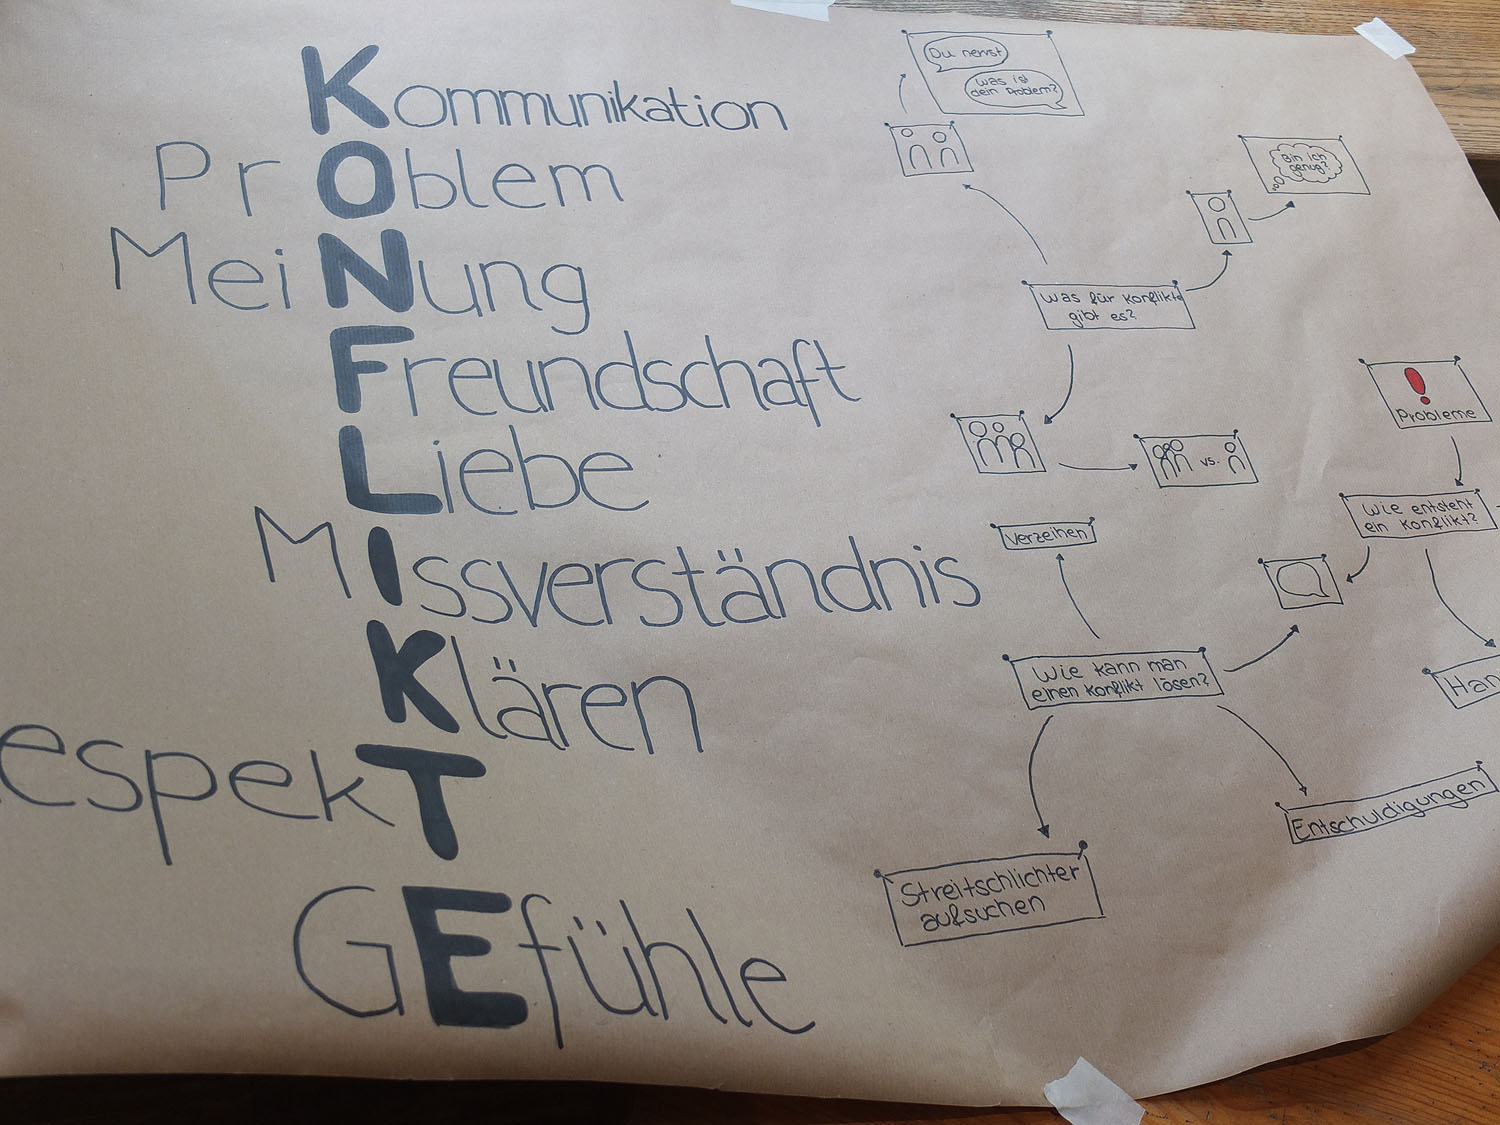 Kommunikation
PrOblem
MeiNung
Freundschaft
Liebe
MIssverständnis
Klären
espekT
GEfühle
Du nervst
Was ist
dein Problem?
Bin ich
genug?
Was für Konflikte
gibt es?
vs.
Probleme
Wie entsteht
ein Konflikt?
Verzeihen
Wie kann man
einen Konflikt lösen?
Han
Entschuldigungen
Streitschlichter
aufsuchen